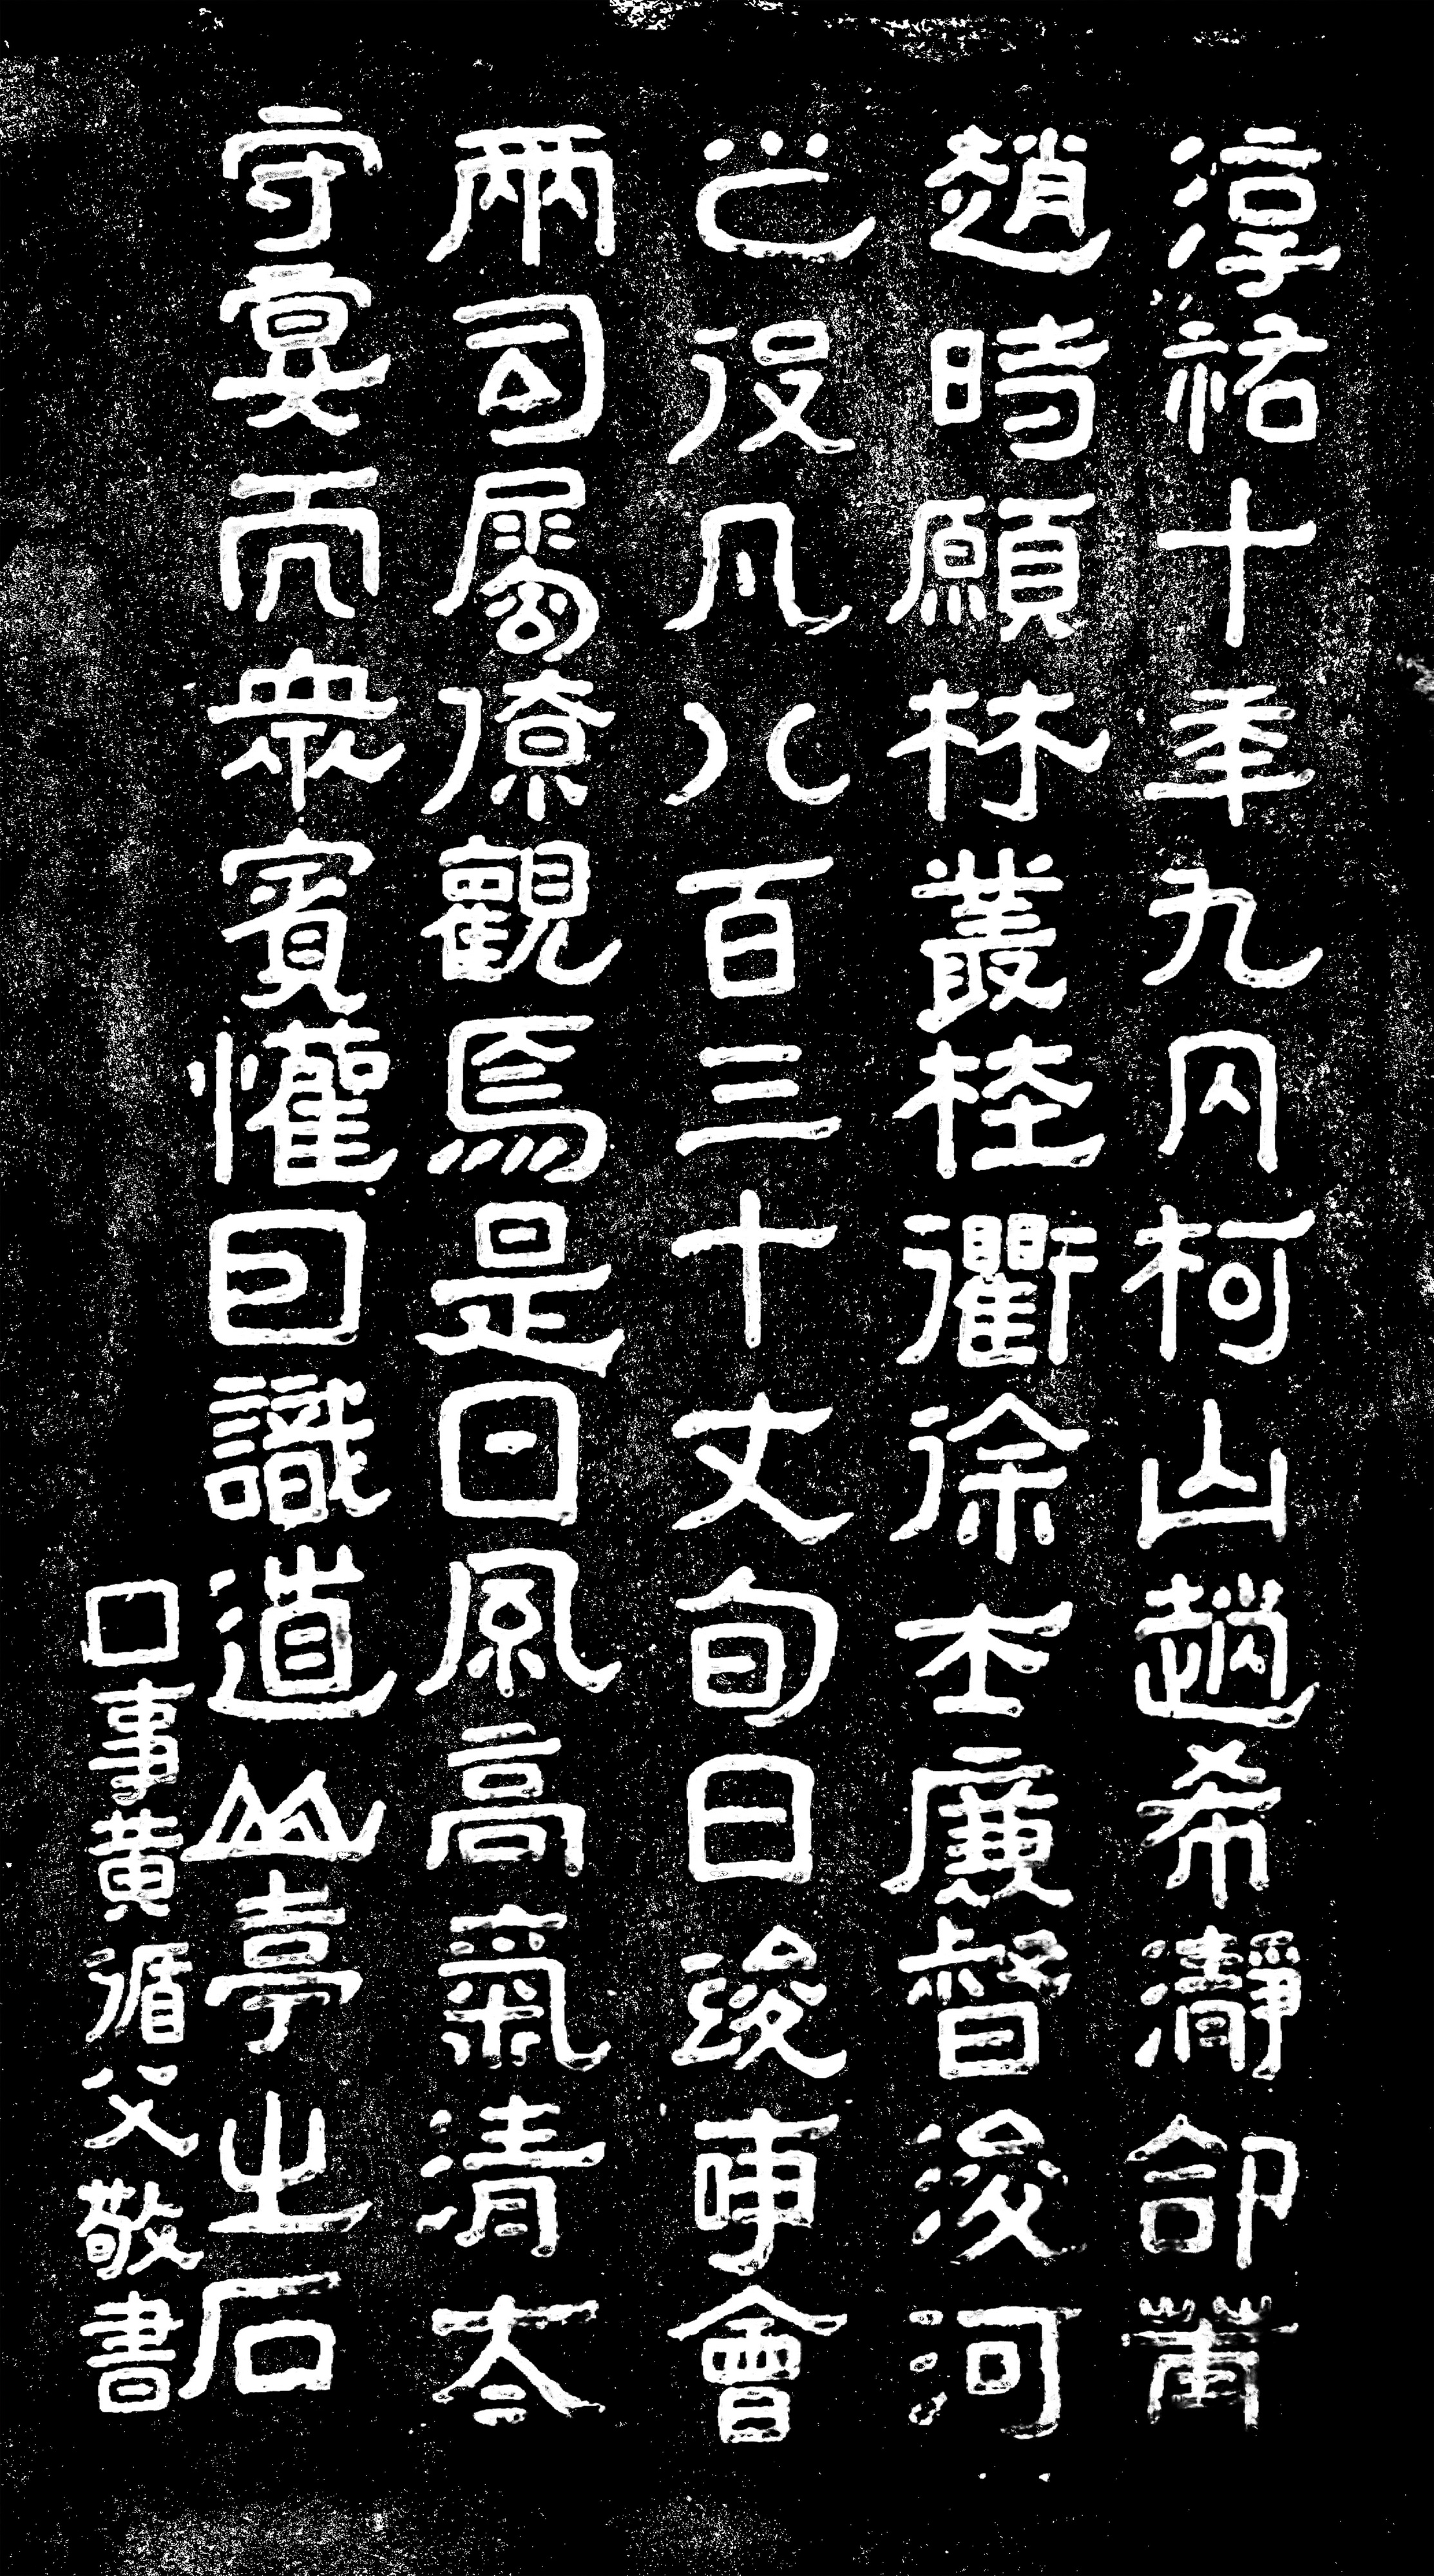 淳祐十年九月柯山趙希瀞命莆
趙時願林叢桂衢徐士廉督浚河
之役凡八百三十丈旬日竣事會
兩司屬僚觀焉是日風高氣清太
守宴而衆賓懽因識道山亭之石
□事黃循父敬書